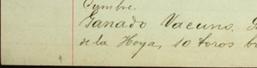 Cymbre.
Ganado Vacuno.
de la Hoya, 10 toros